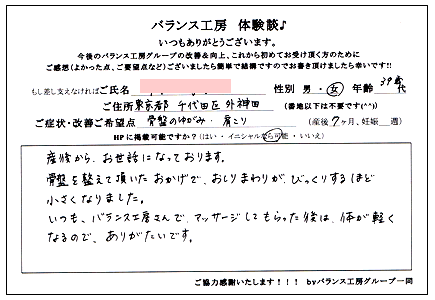 バランス工房 体験談♪
いつもありがとうございます。
今後のバランス工房グループの改善&向上、これから初めてお受け頂く方のために
ご感想(よかった点、ご要望点など)ございましたら簡単で結構ですのでお書き頂けましたら幸いです!!
もし差し支えなければご氏名 性別 男・女 年齢 39歳代
ご住所 東京都 千代田区 外神田 (番地以下は不要です(^^))
ご症状・改善ご希望点 骨盤のゆがみ・肩こり (産後7ヶ月、妊娠 週)
HPに掲載可能ですか?(はい・イニシャルなら可能・いいえ)
産後から、お世話になっております。
骨盤を整えて頂いたおかげで、おしりまわりが、びっくりするほど
小さくなりました。
いつも、バランス工房さんで、マッサージしてもらった後は、体が軽く
なるので、ありがたいです。
ご協力感謝いたします!!! byバランス工房グループ一同